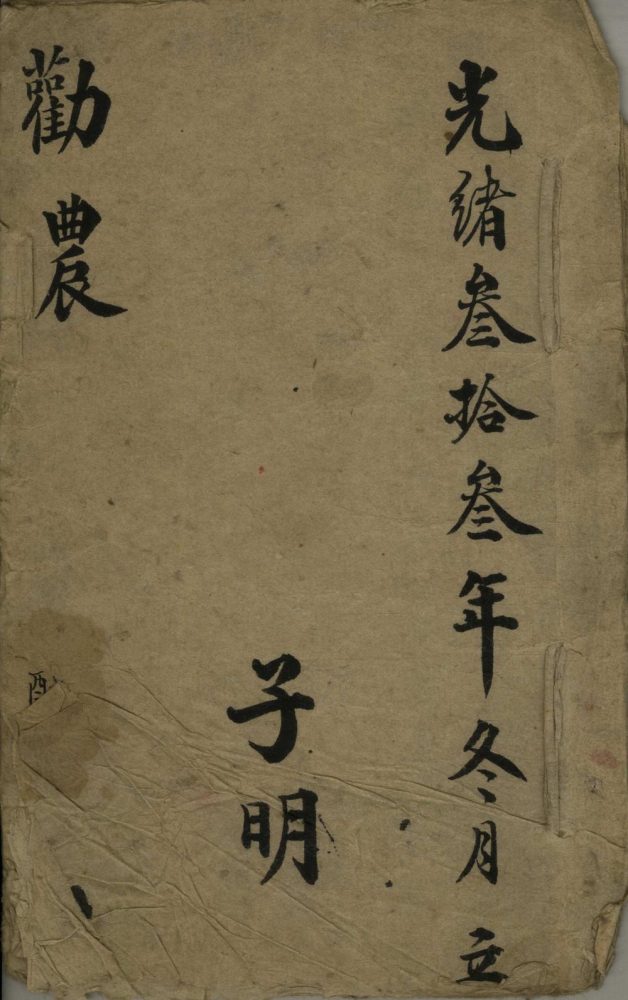 光緒叁拾叁年冬月立
子明
勸農